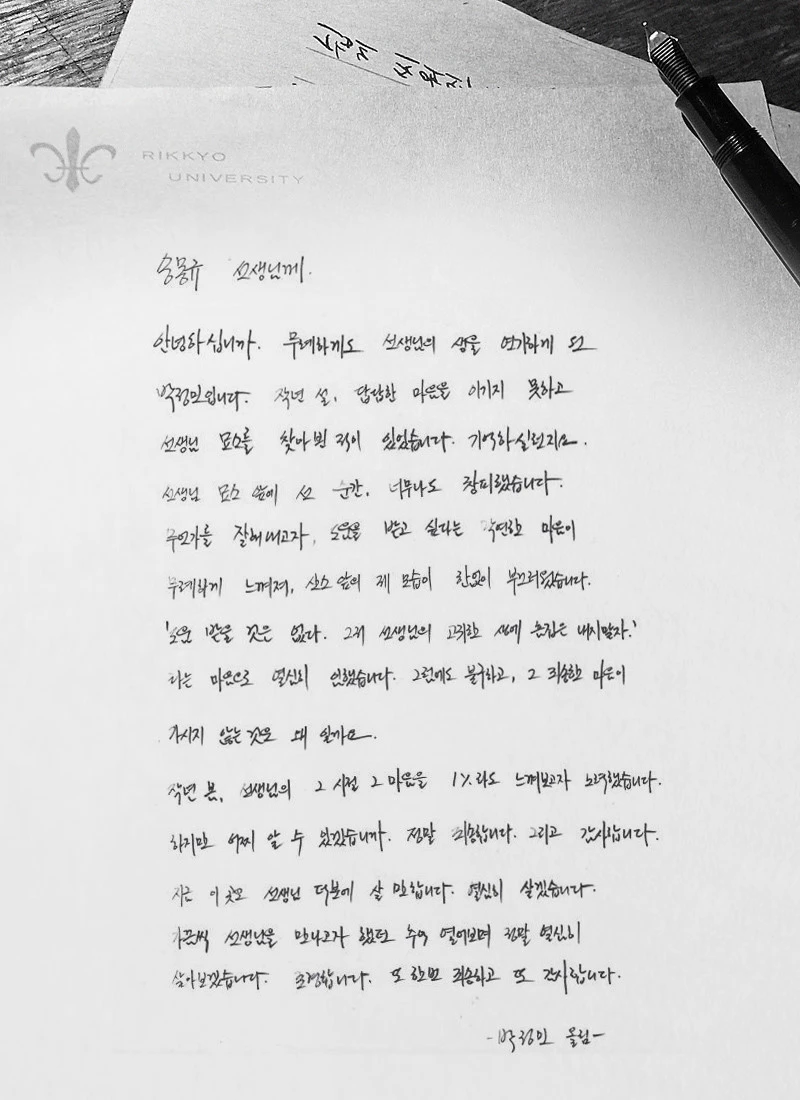 RIKKYO
UNIVERSITY
송몽규 선생님께.
안녕하십니까. 무례하게도 선생님의 생을 연기하게 된
박정민입니다. 작년 설, 답답한 마음을 이기지 못하고
선생님 묘소를 찾아뵌 적이 있었습니다. 기억하실런지요.
선생님 묘소 앞에 선 순간, 너무나도 창피했습니다.
무언가를 잘해내고자, 도움을 받고 싶다는 막연한 마음이
무례하게 느껴져, 산소 앞의 제 모습이 한없이 부끄러웠습니다.
'도움 받을 것은 없다. 그저 선생님의 고귀한 생에 흠집은 내지말자.'
라는 마음으로 열심히 임했습니다. 그럼에도 불구하고, 그 죄송한 마음이
가시지 않는 것은 왜 일까요.
작년 봄, 선생님의 그 시절 그 마음을 1%라도 느껴보고자 노력했습니다.
하지만 어찌 알 수 있겠습니까. 정말 죄송합니다. 그리고 감사합니다.
지금 이 곳은 선생님 덕분에 살 만합니다. 열심히 살겠습니다.
가끔씩 선생님을 만나고자 했던 추억 열어보며 정말 열심히
살아보겠습니다. 존경합니다. 또 한번 죄송하고 또 감사합니다.
-박정민 올림-